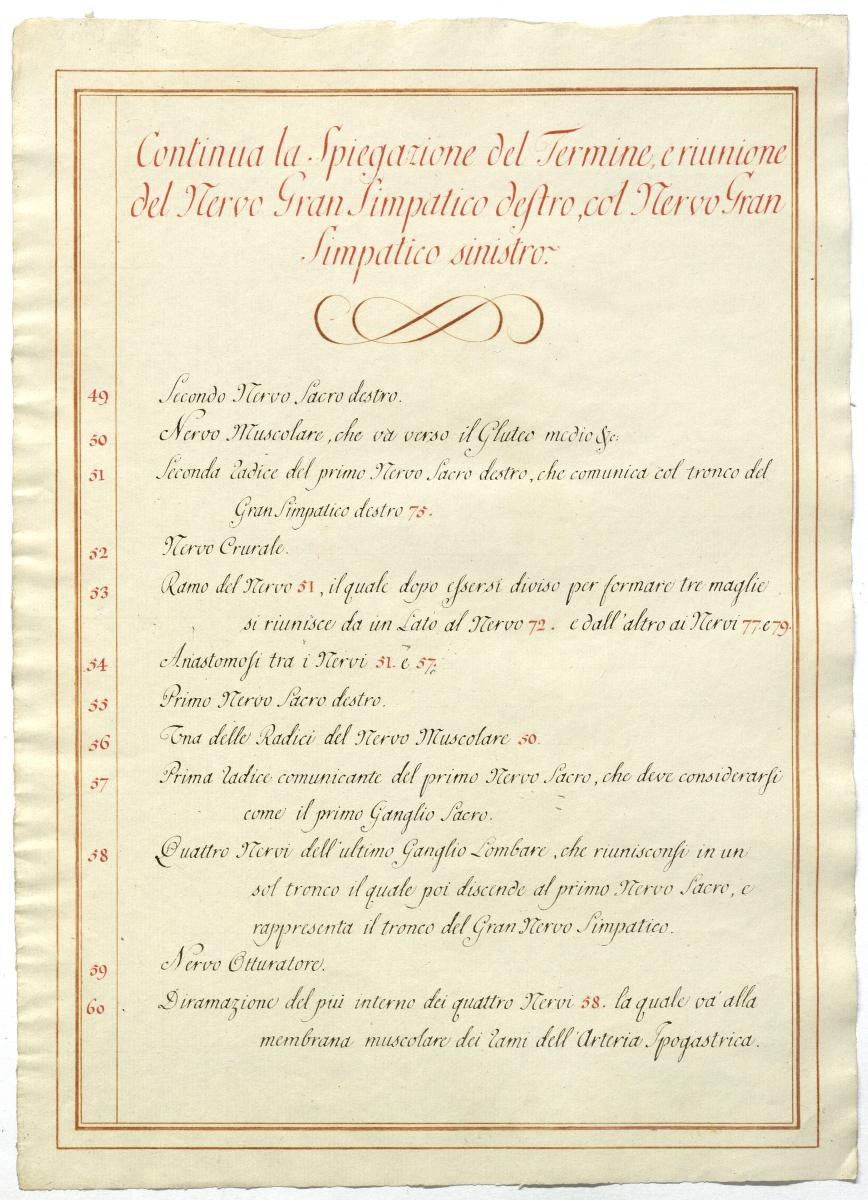 Continua la Spiegazione del Termine, e riunione
del Nervo Gran Simpatico destro, col Nervo Gran
Simpatico sinistro.
49 Secondo Nervo Sacro destro.
50 Nervo Muscolare, che và verso il Gluteo medio &c:
51 Seconda radice del primo Nervo Sacro destro, che comunica col tronco del
Gran Simpatico destro 75.
52 Nervo Crurale.
53 Ramo del Nervo 51, il quale dopo essersi diviso per formare tre maglie
si riunisce da un Lato al Nervo 72. e dall'altro ai Nervi 77. e 79.
54 Anastomosi tra i Nervi 51. e 57.
55 Primo Nervo Sacro destro.
56 Una delle Radici del Nervo Muscolare 50.
57 Prima radice comunicante del primo Nervo Sacro, che deve considerarsi
come il primo Ganglio Sacro.
58 Quattro Nervi dell'ultimo Ganglio Lombare, che riunisconsi in un
sol tronco il quale poi discende al primo Nervo Sacro, e
rappresenta il tronco del Gran Nervo Simpatico.
59 Nervo Otturatore.
60 Diramazione del più interno dei quattro Nervi 58. la quale và alla
membrana muscolare dei rami dell'Arteria Ipogastrica.